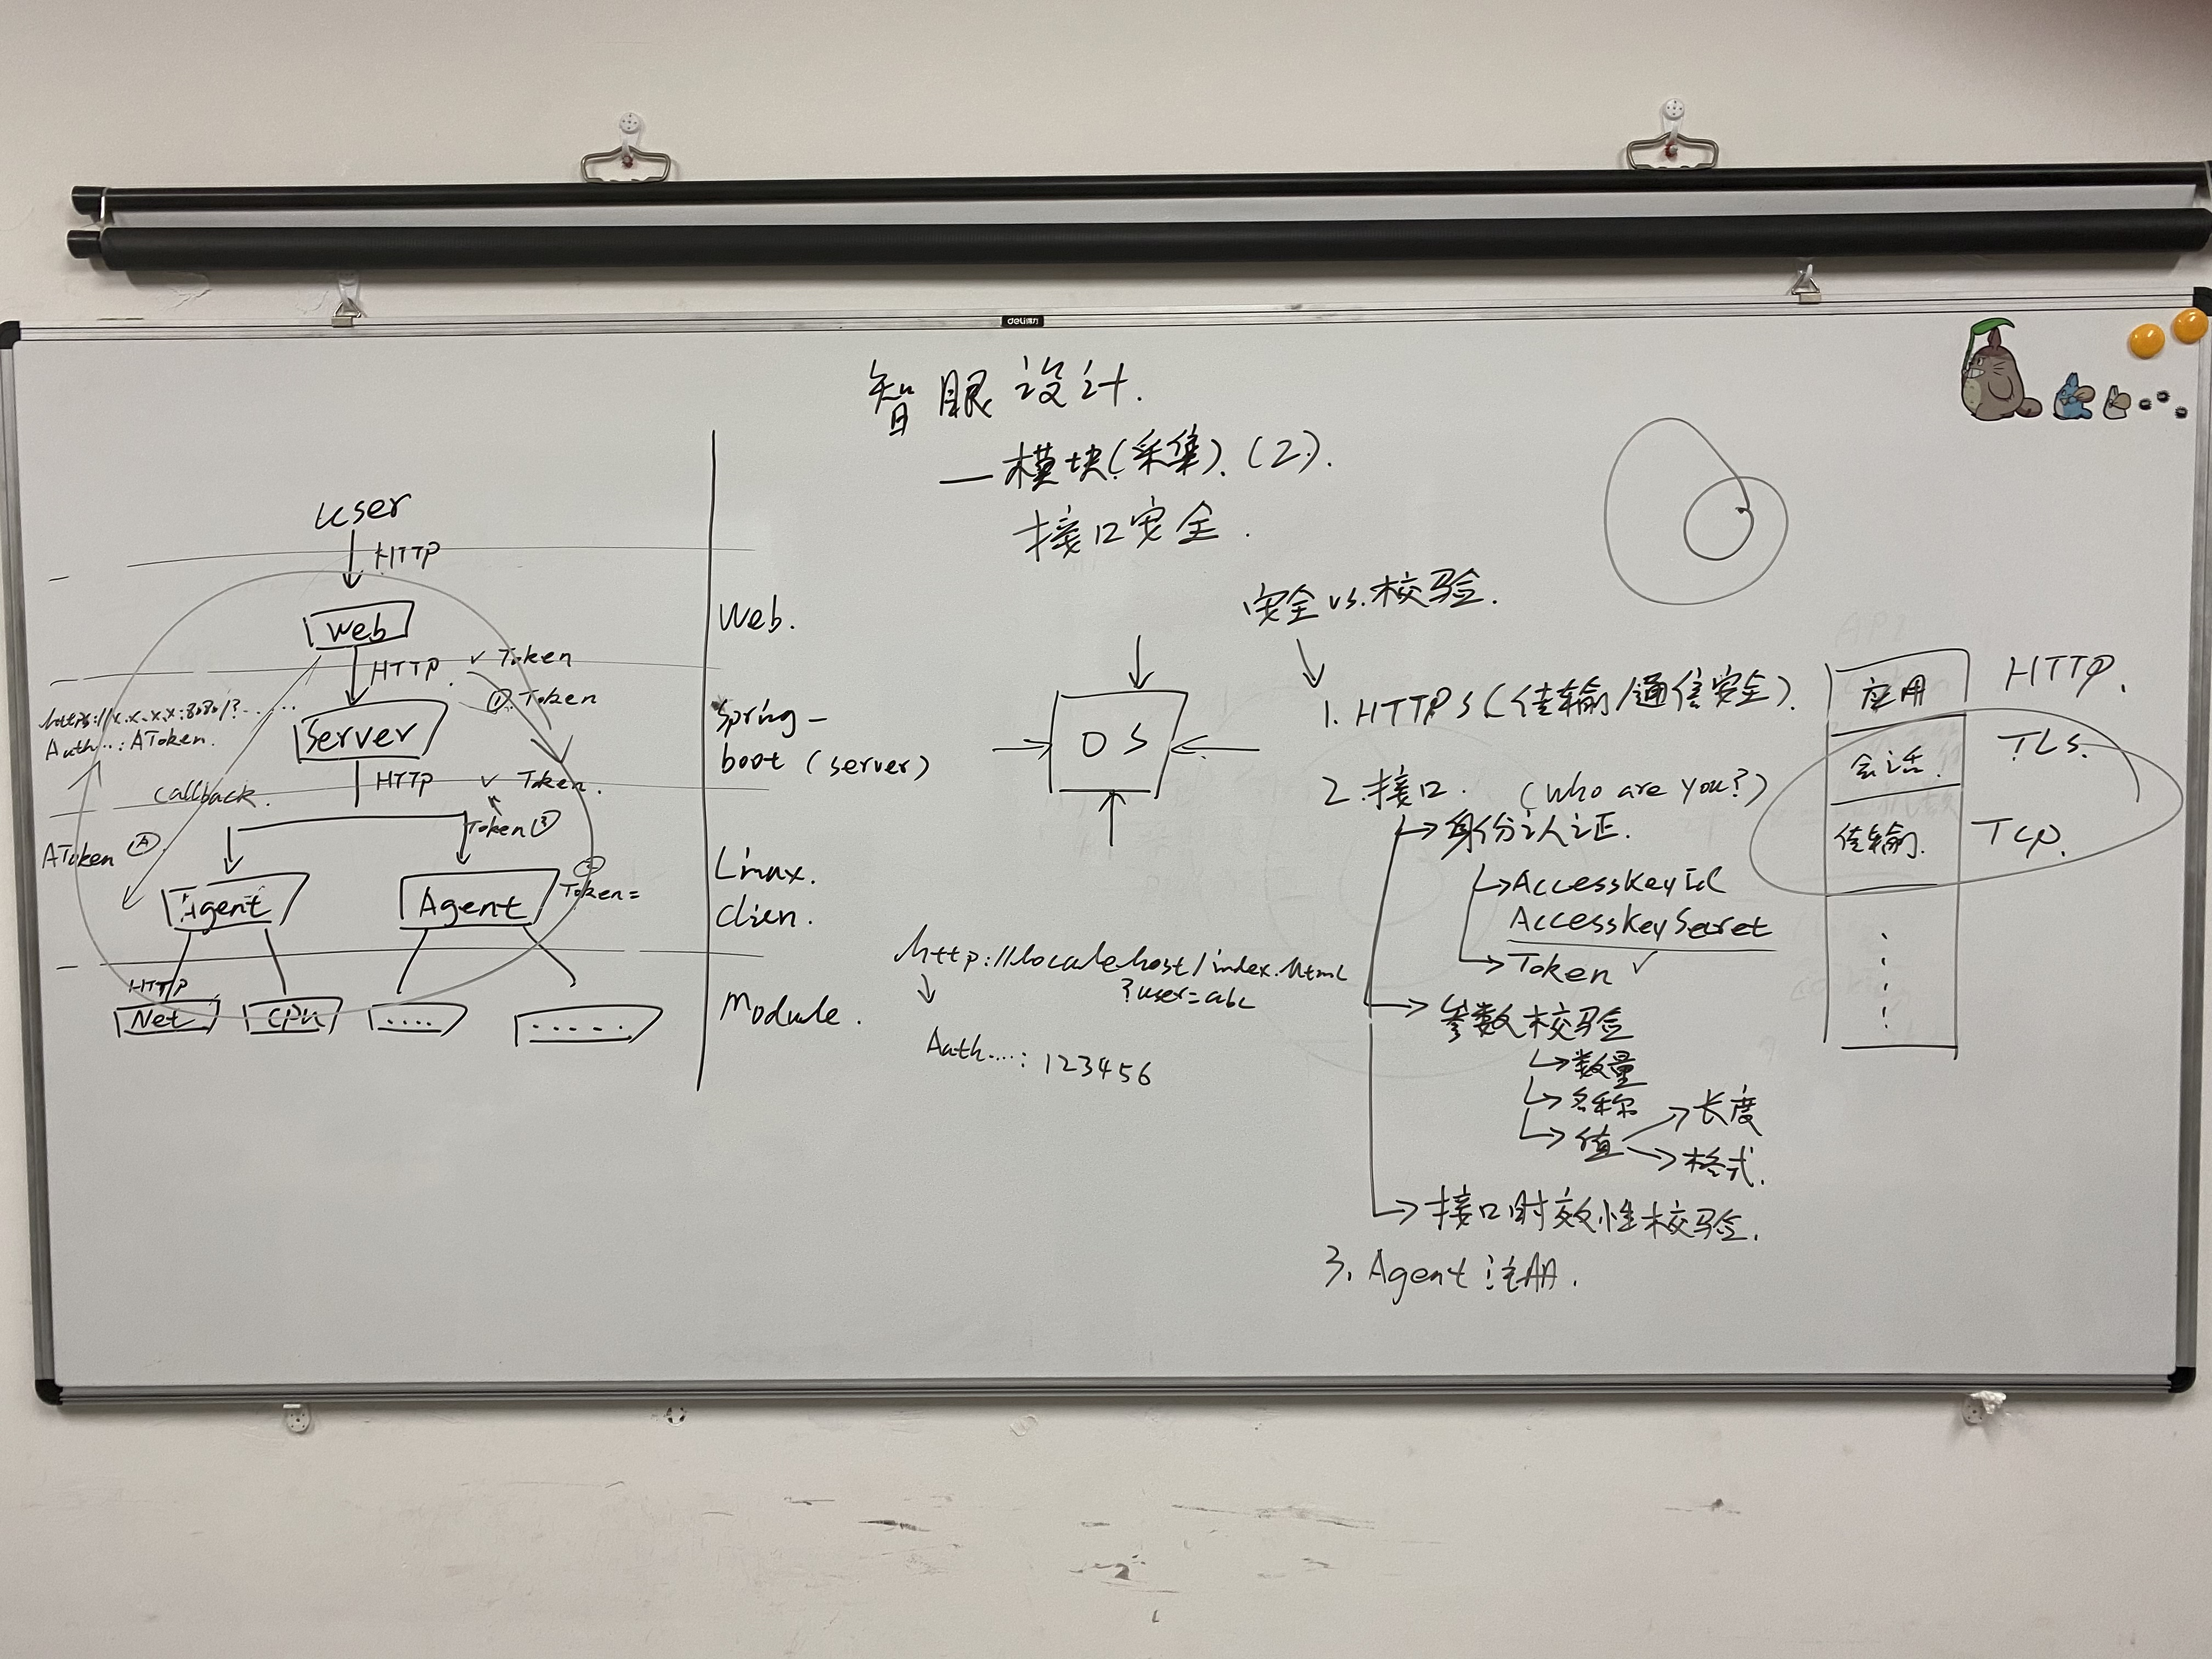 deli得力
智眼设计.
—模块(采集).(2).
接口安全.
user
HTTP
Web
HTTP.
✓ Token
① Token
https://x.x.x.x:8080/?......
Auth...: AToken.
Server
HTTP
✓ Token.
callback.
Token ③
AToken Ⓐ
② Token=
Agent
Agent
HTTP
Net
CPU
....
.....
Web.
Spring-
boot (server)
Linux.
Clien.
Module.
OS
http://localehost/index.html
?user=abc
Auth....: 123456
安全 vs. 校验.
1. HTTPS (传输/通信安全).
2. 接口. (Who are you?)
身份认证.
AccessKeyId
AccessKeySecret
Token ✓
参数校验
数量
名称
值
长度
格式.
接口时效性校验.
3. Agent 注册.
应用 HTTP.
会话. TLS.
传输. TCP.